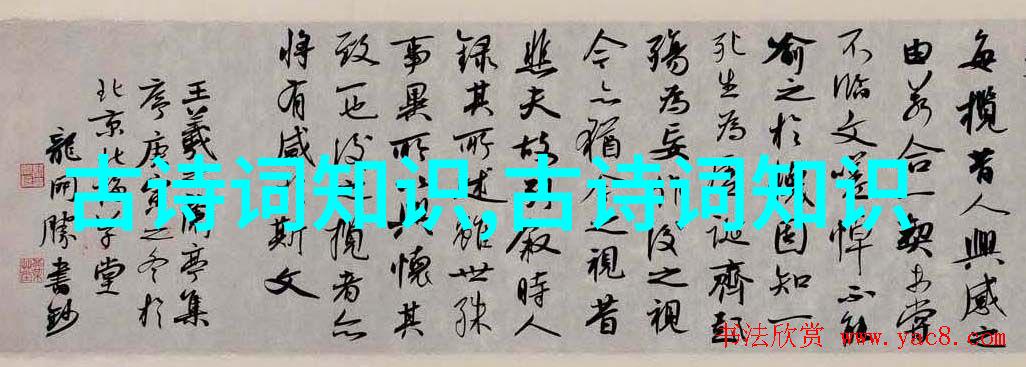 每攬昔人興感之
由若合一契未嘗
不臨文嗟悼不能
喻之於懷固知一
死生為虛誕齊彭
殤為妄作後之視
今亦猶今之視昔
悲夫故列敘時人
錄其所述雖世殊
事異所以興懷其
致一也後之攬者亦
將有感於斯文
王羲之蘭亭集
序庚寅之冬於
北京北海堂
龍開勝書鈔
古诗词知识,古诗词知识
书法欣赏 www.yac8.com